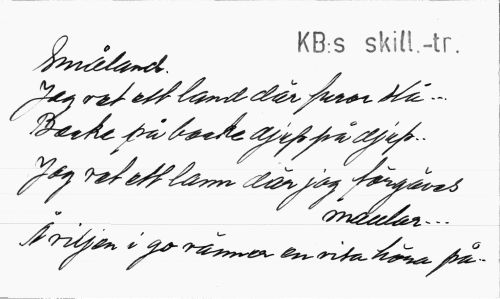 KB:s skill.-tr.
Småland.
Jag vet ett land där furor stå...
Backe på backe djup på djup..
Jag vet ett land där jag förgäves
mallar...
Å viljen i go vänner en visa höra på..